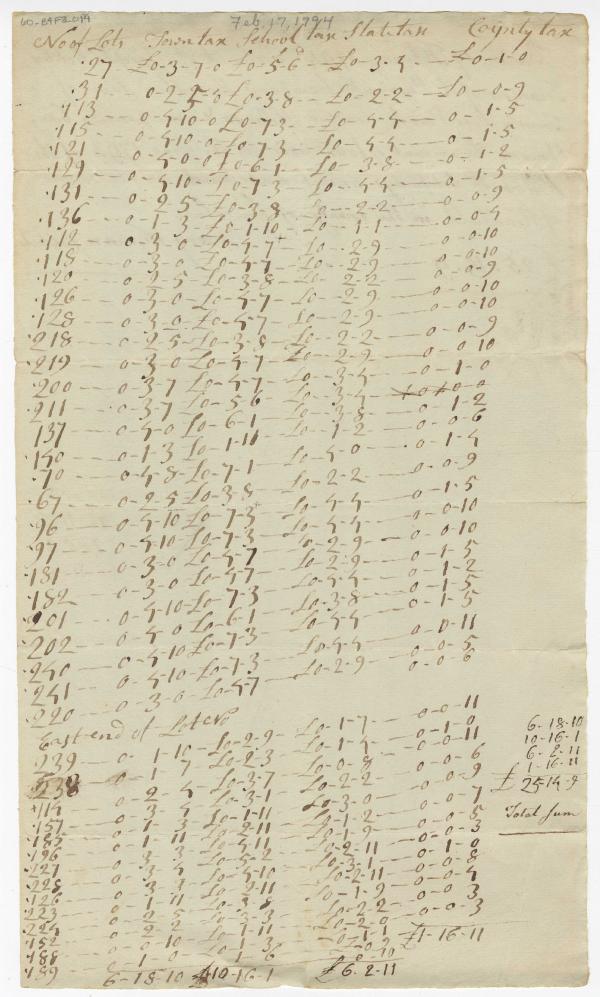 60-B4F2-019
Feb 17, 1794
No of Lots Town tax School tax State tax County tax
27 £0-3-7 £0-5-6 £0-3-4 £0-1-0
31 0-2-5 £0-3-8 £0-2-2 £0-0-9
113 0-4-10 £0-7-3 £0-4-4 0-1-5
115 0-4-10 £0-7-3 £0-4-4 0-1-5
121 0-4-0 £0-6-1 £0-3-8 0-1-2
129 0-4-10 £0-7-3 £0-4-4 0-1-5
131 0-2-5 £0-3-8 £0-2-2 0-0-9
136 0-1-3 £0-1-10 £0-1-1 0-0-4
112 0-3-0 £0-4-7 £0-2-9 0-0-10
118 0-3-0 £0-4-7 £0-2-9 0-0-10
120 0-2-5 £0-3-8 £0-2-2 0-0-9
126 0-3-0 £0-4-7 £0-2-9 0-0-10
128 0-3-0 £0-4-7 £0-2-9 0-0-10
218 0-2-5 £0-3-8 £0-2-2 0-0-9
219 0-3-0 £0-4-7 £0-2-9 0-0-10
200 0-3-7 £0-4-7 £0-3-4 0-1-0
211 0-3-7 £0-5-6 £0-3-4
137 0-4-0 £0-6-1 £0-3-8 0-1-2
140 0-1-3 £0-1-10 £0-1-2 0-0-6
70 0-4-8 £0-7-1 £0-4-0 0-1-4
67 0-2-5 £0-3-8 £0-2-2 0-0-9
96 0-4-10 £0-7-3 £0-4-4 0-1-5
97 0-4-10 £0-7-3 £0-4-4 0-0-10
181 0-3-0 £0-4-7 £0-2-9 0-0-10
182 0-3-0 £0-4-7 £0-2-9 0-1-5
201 0-4-10 £0-7-3 £0-4-4 0-1-2
202 0-4-0 £0-6-1 £0-3-8 0-1-5
240 0-4-10 £0-7-3 £0-4-4 0-1-5
241 0-4-10 £0-7-3 £0-4-4 0-0-11
220 0-3-0 £0-4-7 £0-2-9 0-0-5
0-0-6
East end of Lot No
239 0-1-10 £0-2-9 £0-1-7 0-0-11
238 0-1-7 £0-2-3 £0-1-4 0-1-0
114 0-2-4 £0-3-7 £0-0-8 0-0-11
157 £0-3-1 £0-2-2 0-0-6
185 0-1-3 £0-1-11 £0-3-0 0-0-9
196 0-1-11 £0-2-11 £0-1-2 0-0-7
227 0-3-3 £0-4-11 £0-1-9 0-0-5
228 0-3-4 £0-5-2 £0-2-11 0-0-3
126 0-3-3 £0-4-10 £0-3-1 0-1-0
223 0-1-11 £0-2-11 £0-2-11 0-0-8
224 0-2-5 £0-3-8 £0-1-9 0-0-4
152 0-2-2 £0-3-3 £0-2-2 0-0-3
188 0-0-10 £0-1-11 £0-2-0 0-0-3
189 0-1-0 £0-1-3 £0-1-1 £1-16-11
0-1-6
6-18-10 £10-16-1 £6-2-11
6-18-10
10-16-1
6-2-11
1-16-11
£25-14-9
Total sum